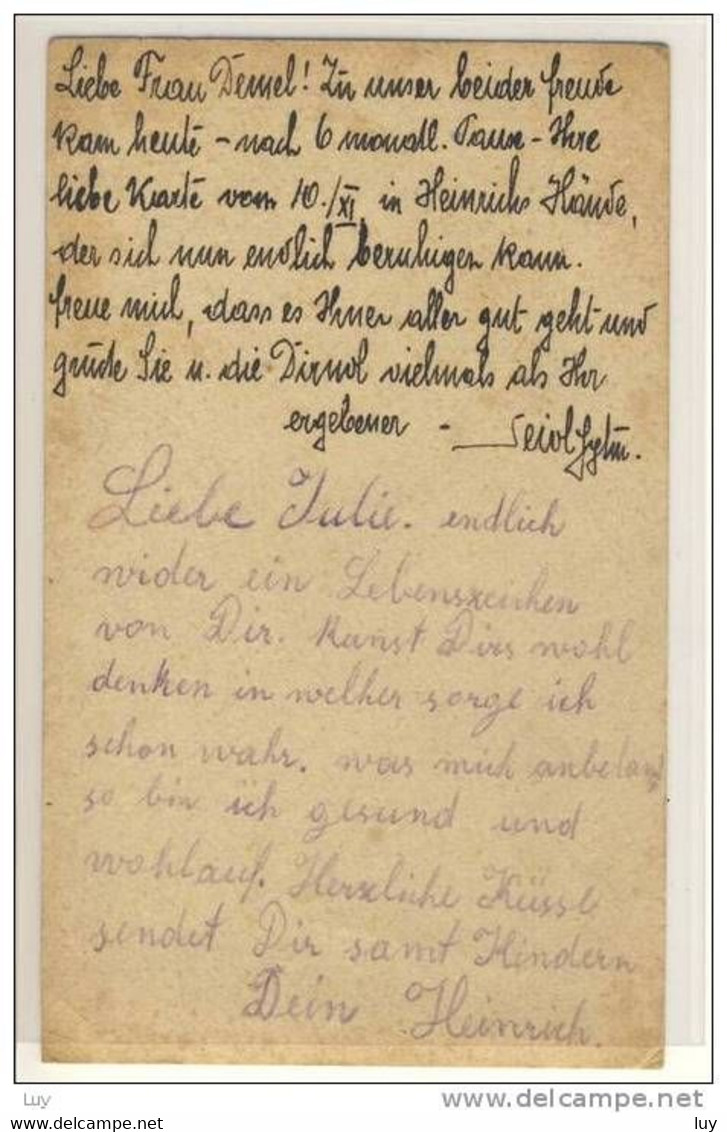 Liebe Frau Demel! Zu unser beider freude
kam heute - nach 6 monatl. Pause - Ihre
liebe Karte vom 10./XI. in Heinrichs Hände,
der sich nun endlich beruhigen kann.
freue mich, dass es Ihner aller gut geht und
grüße Sie u. die Dirndl vielmals als Ihr
ergebener -
Liebe Julie. endlich
wider ein Lebenszeichen
von Dir. kanst Dirs wohl
denken in welher sorge ich
schon wahr. was mich anbelangt
so bin ich gesund und
wohlauf. Herzliche Küsse
sendet Dir samt Kindern
Dein Heinrich.
Luy
delcampe.net
Luy
luy
luy